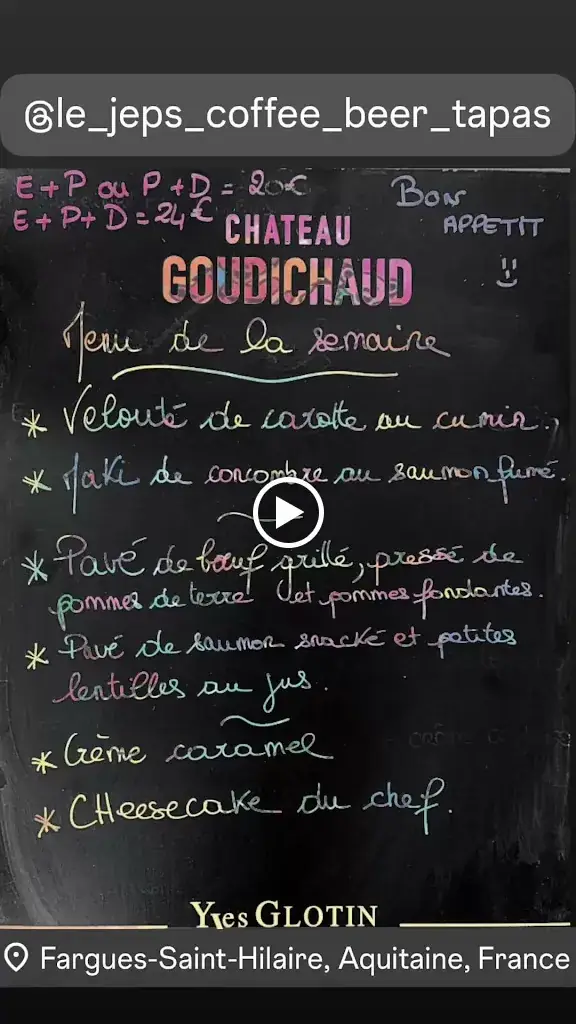 @le_jeps_coffee_beer_tapas
E+P ou P+D = 20€
E+P+D = 24€
Bon
APPETIT
CHATEAU
GOUDICHAUD
Menu de la semaine
* Velouté de carotte au cumin.
* Maki de concombre au saumon fumé.
* Pavé de bœuf grillé, pressé de
pommes de terre et pommes fondantes.
* Pavé de saumon snacké et petites
lentilles au jus.
* Crème caramel
* CHeesecake du chef.
Yves GLOTIN
Fargues-Saint-Hilaire, Aquitaine, France